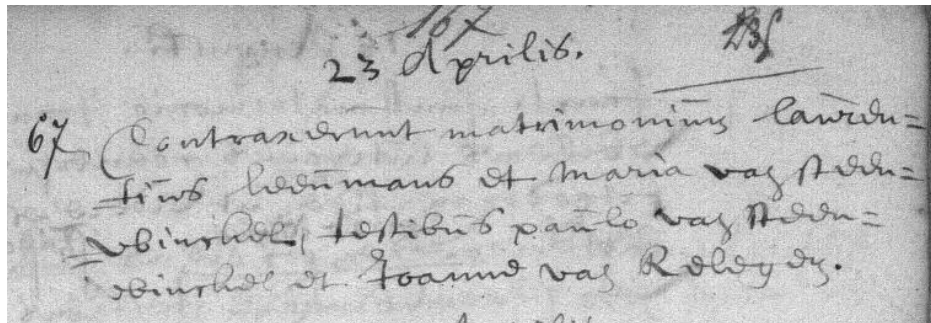 167
23 Aprilis.
67 Contraxerunt matrimoniũ lawren=
tiũs leeũmans et Maria van steen=
wbinckel, testibũs paũlo van steen=
wbinckel et Joanne van Relegen.